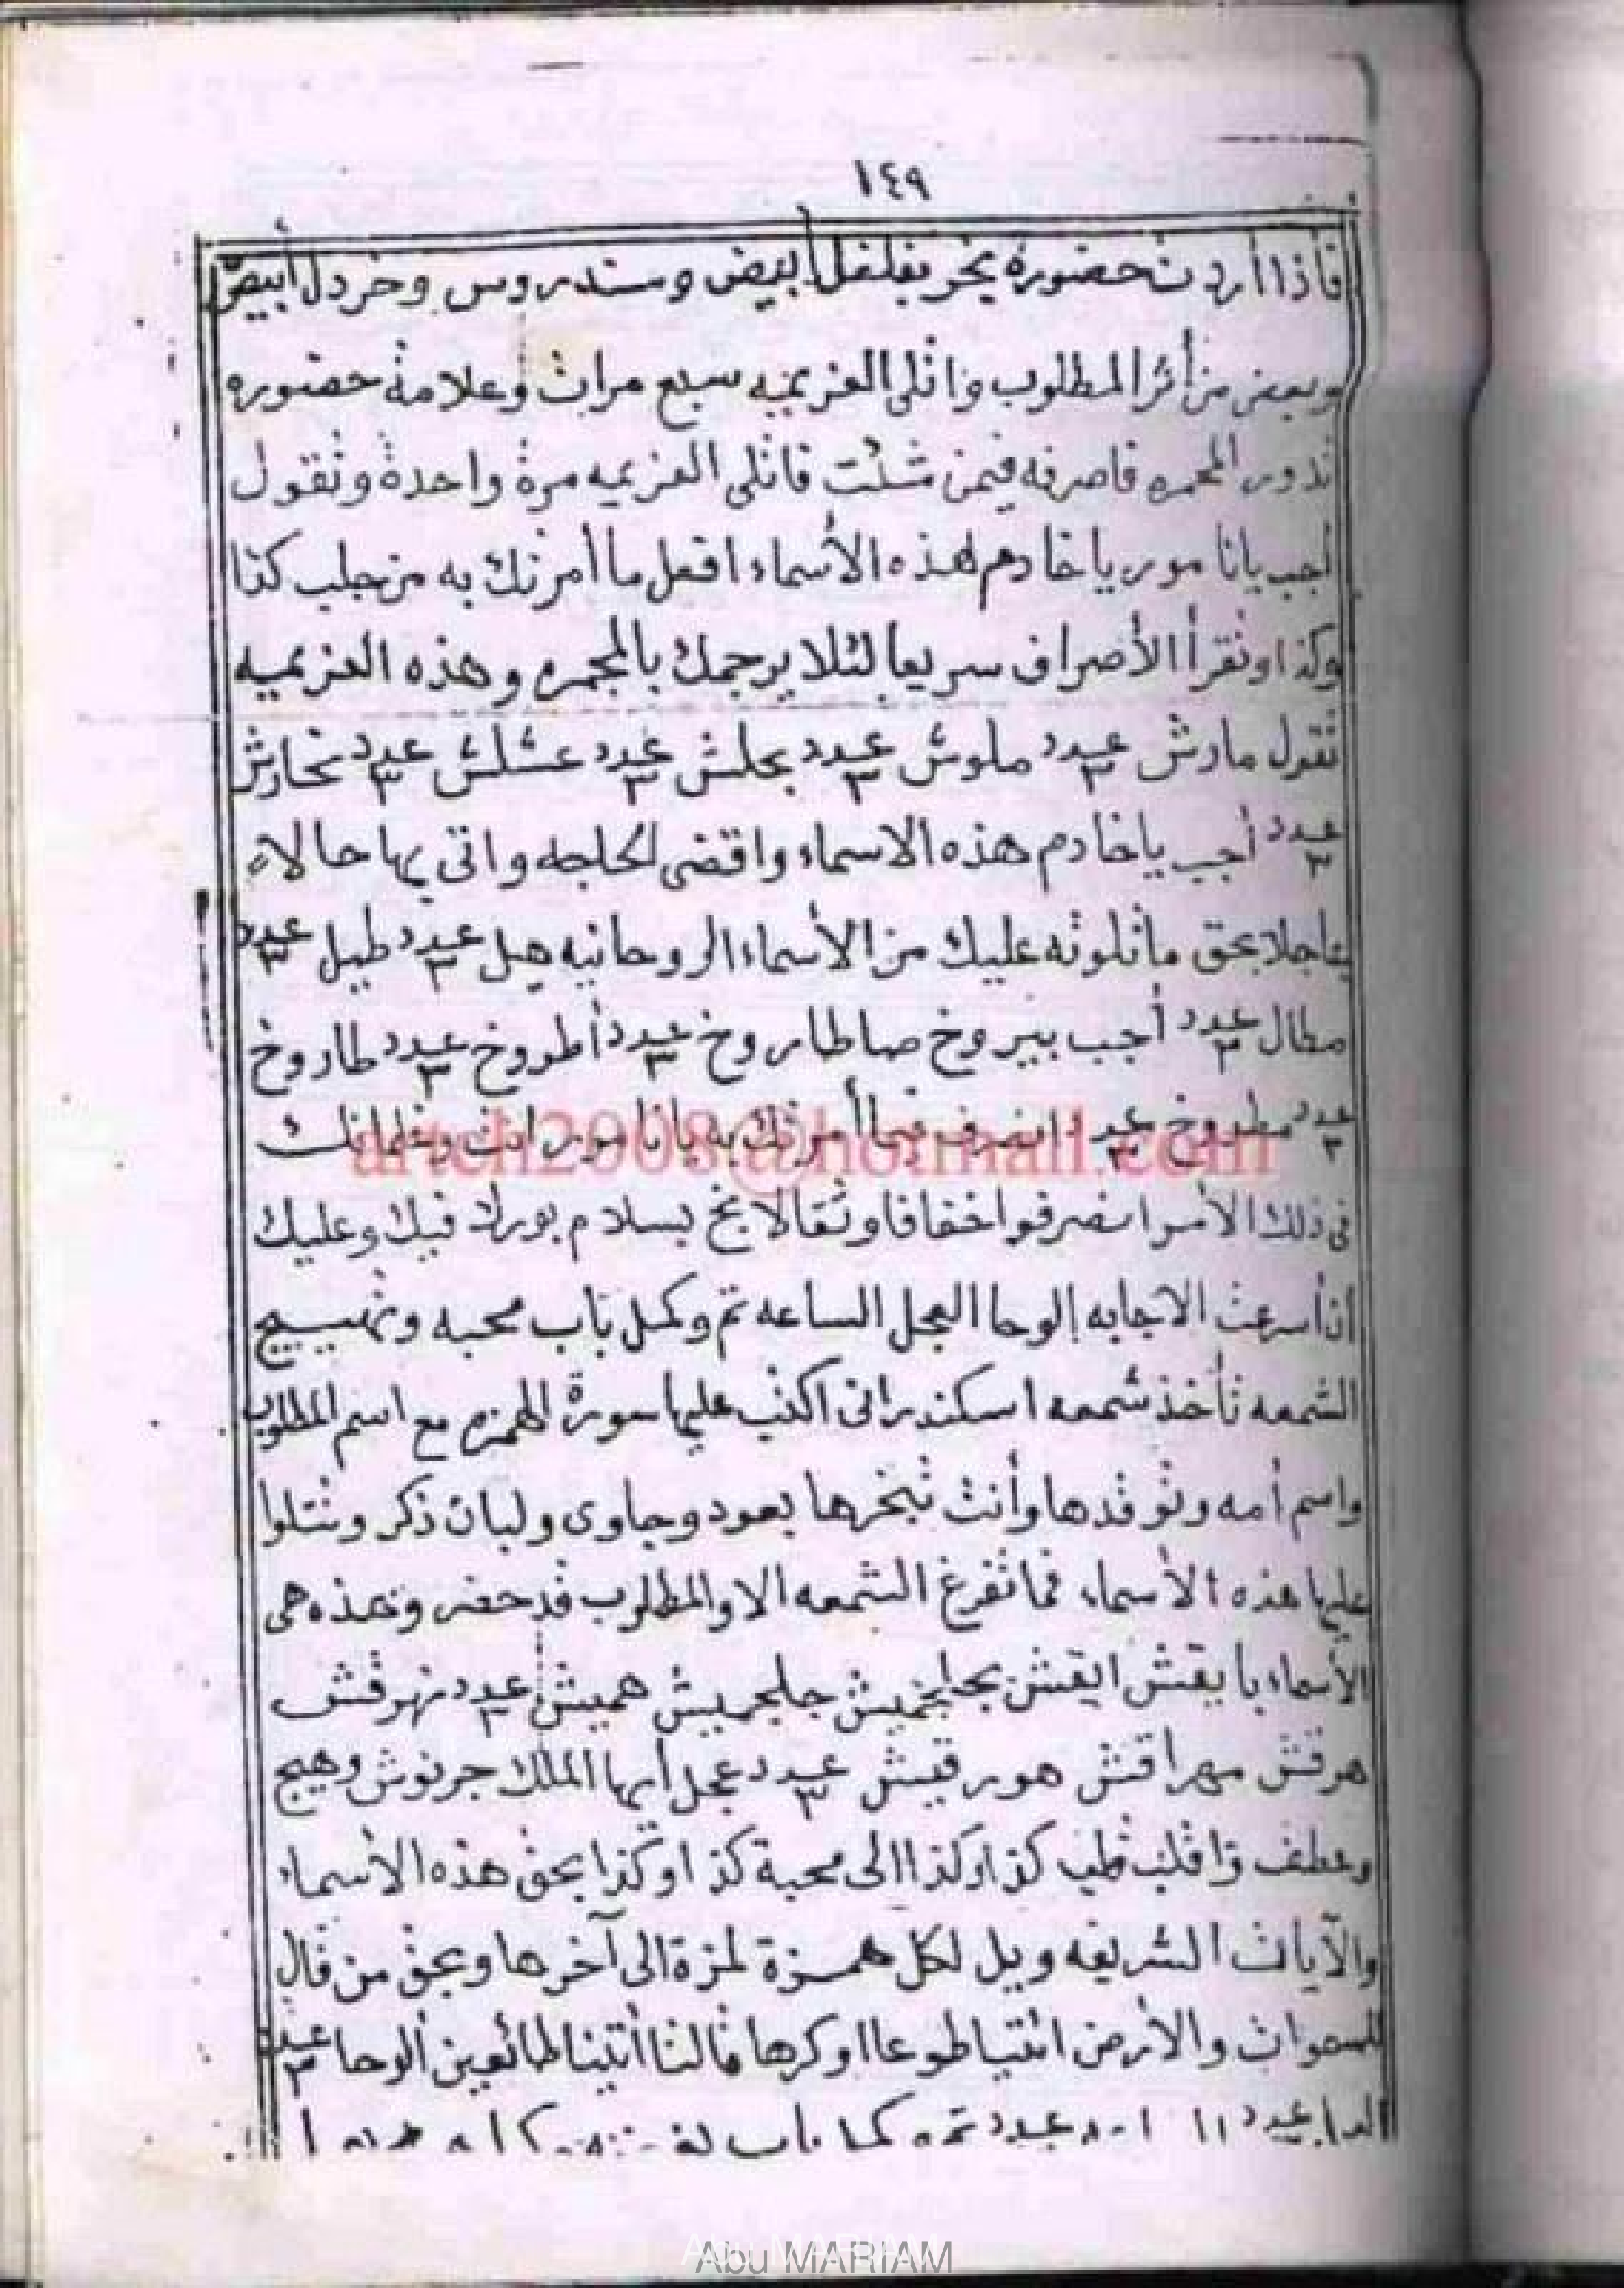 ١٤٩
فأذا أردت حضوره بخر بفلفل أبيض وسندروس وخردل أبيض
وبعض من أثر المطلوب واتلى العزيميه سبع مرات وعلامة حضوره
تدور المجمره فاصرفه فيمن شئت فاتلى العزيميه مرة واحدة وتقول
أجب يانا مور ياخادم لهذه الأسماء افعل ما أمرتك به من جلب كذا
وكذا وتقرأ الأصراف سريعا لئلا يرجمك بالمجمره وهذه العزيميه
تقول مارش عدد ٣ ملوش عدد ٣ بجلش عدد ٣ عشلش عدد ٣ نخارش
عدد ٣ أجب ياخادم هذه الاسماء واقضى لحاجه واتى بها حالا
عاجلا بحق ماتلوته عليك من الأسماء الروحانيه هيل عدد ٣ طيل عدد ٣
مطال عدد ٣ أجب بيروخ صاطاروخ عدد ٣ أطروخ عدد ٣ طاروخ
عدد ٣ مطروخ عدد ٣ انصرف فيما أمرتك به يانا مور انت وغلمانك
artch2008@hotmail.com
فى ذلك الأمر انصرفوا خفافا وثقالا بخ بسلام بورك فيك وعليك
أن أسرعت الاجابه الوحا العجل الساعه تم وكمل باب محبه وتهييج
الشمعه تأخذ شمعه اسكندرانى اكتب عليها سورة الهمزه مع اسم المطلوب
واسم أمه وتوقدها وأنت تبخرها بعود وجاوى ولبان ذكر وتتلوا
عليها هذه الأسماء فما تفرغ الشمعه الا والمطلوب قد حضر وهذه هى
الأسماء يايقش ايقش بجلجميش جلجميش هميش عدد ٣ نهرقش
هرقش مهراقش هورقيش عدد ٣ عجل أيها الملك جرنوش وهيج
وعطف واقلب قلب كذا وكذا الى محبة كذا وكذا بحق هذه الأسماء
والآيات الشريفه ويل لكل همزة لمزة الى آخرها وبحق من قال
للسموات والأرض ائتيا طوعا اوكرها قالتا أتينا طائعين ألوحا عدد ٣
عدد عدد تم وكمل باب
Abu MARIAM